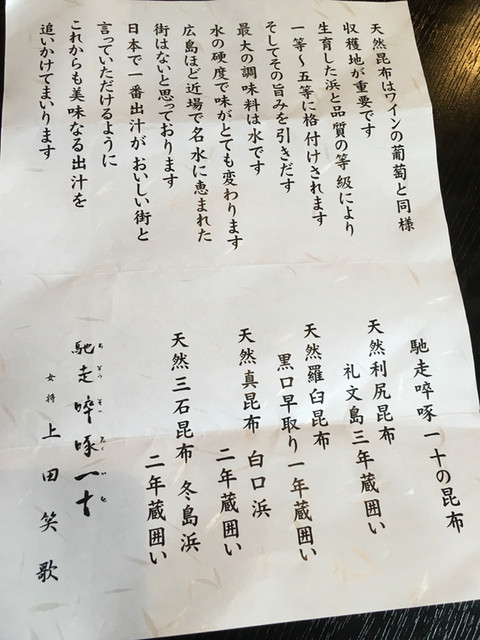 天然昆布はワインの葡萄と同様
収穫地が重要です
生育した浜と品質の等級により
一等～五等に格付けされます
そしてその旨みを引きだす
最大の調味料は水です
水の硬度で味がとても変わります
広島ほど近場で名水に恵まれた
街はないと思っております
日本で一番出汁がおいしい街と
言っていただけるように
これからも美味なる出汁を
追いかけてまいります
馳走啐啄一十の昆布
天然利尻昆布
礼文島三年蔵囲い
天然羅臼昆布
黒口早取り一年蔵囲い
天然真昆布 白口浜
二年蔵囲い
天然三石昆布 冬島浜
二年蔵囲い
ちそう そったくいと
馳走啐啄一十
女将 上田笑歌